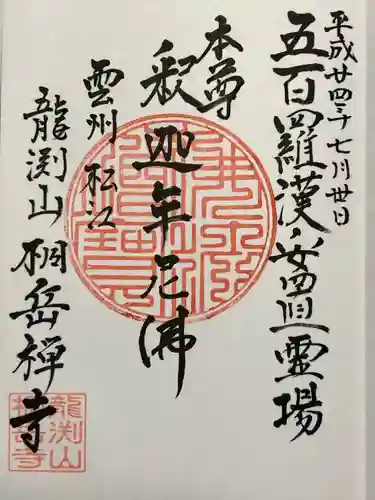 平成廿四年七月廿日
五百羅漢安置靈場
本尊
釈迦牟尼佛
雲州 松江
龍渕山 桐岳禅寺
龍渕山
桐岳寺